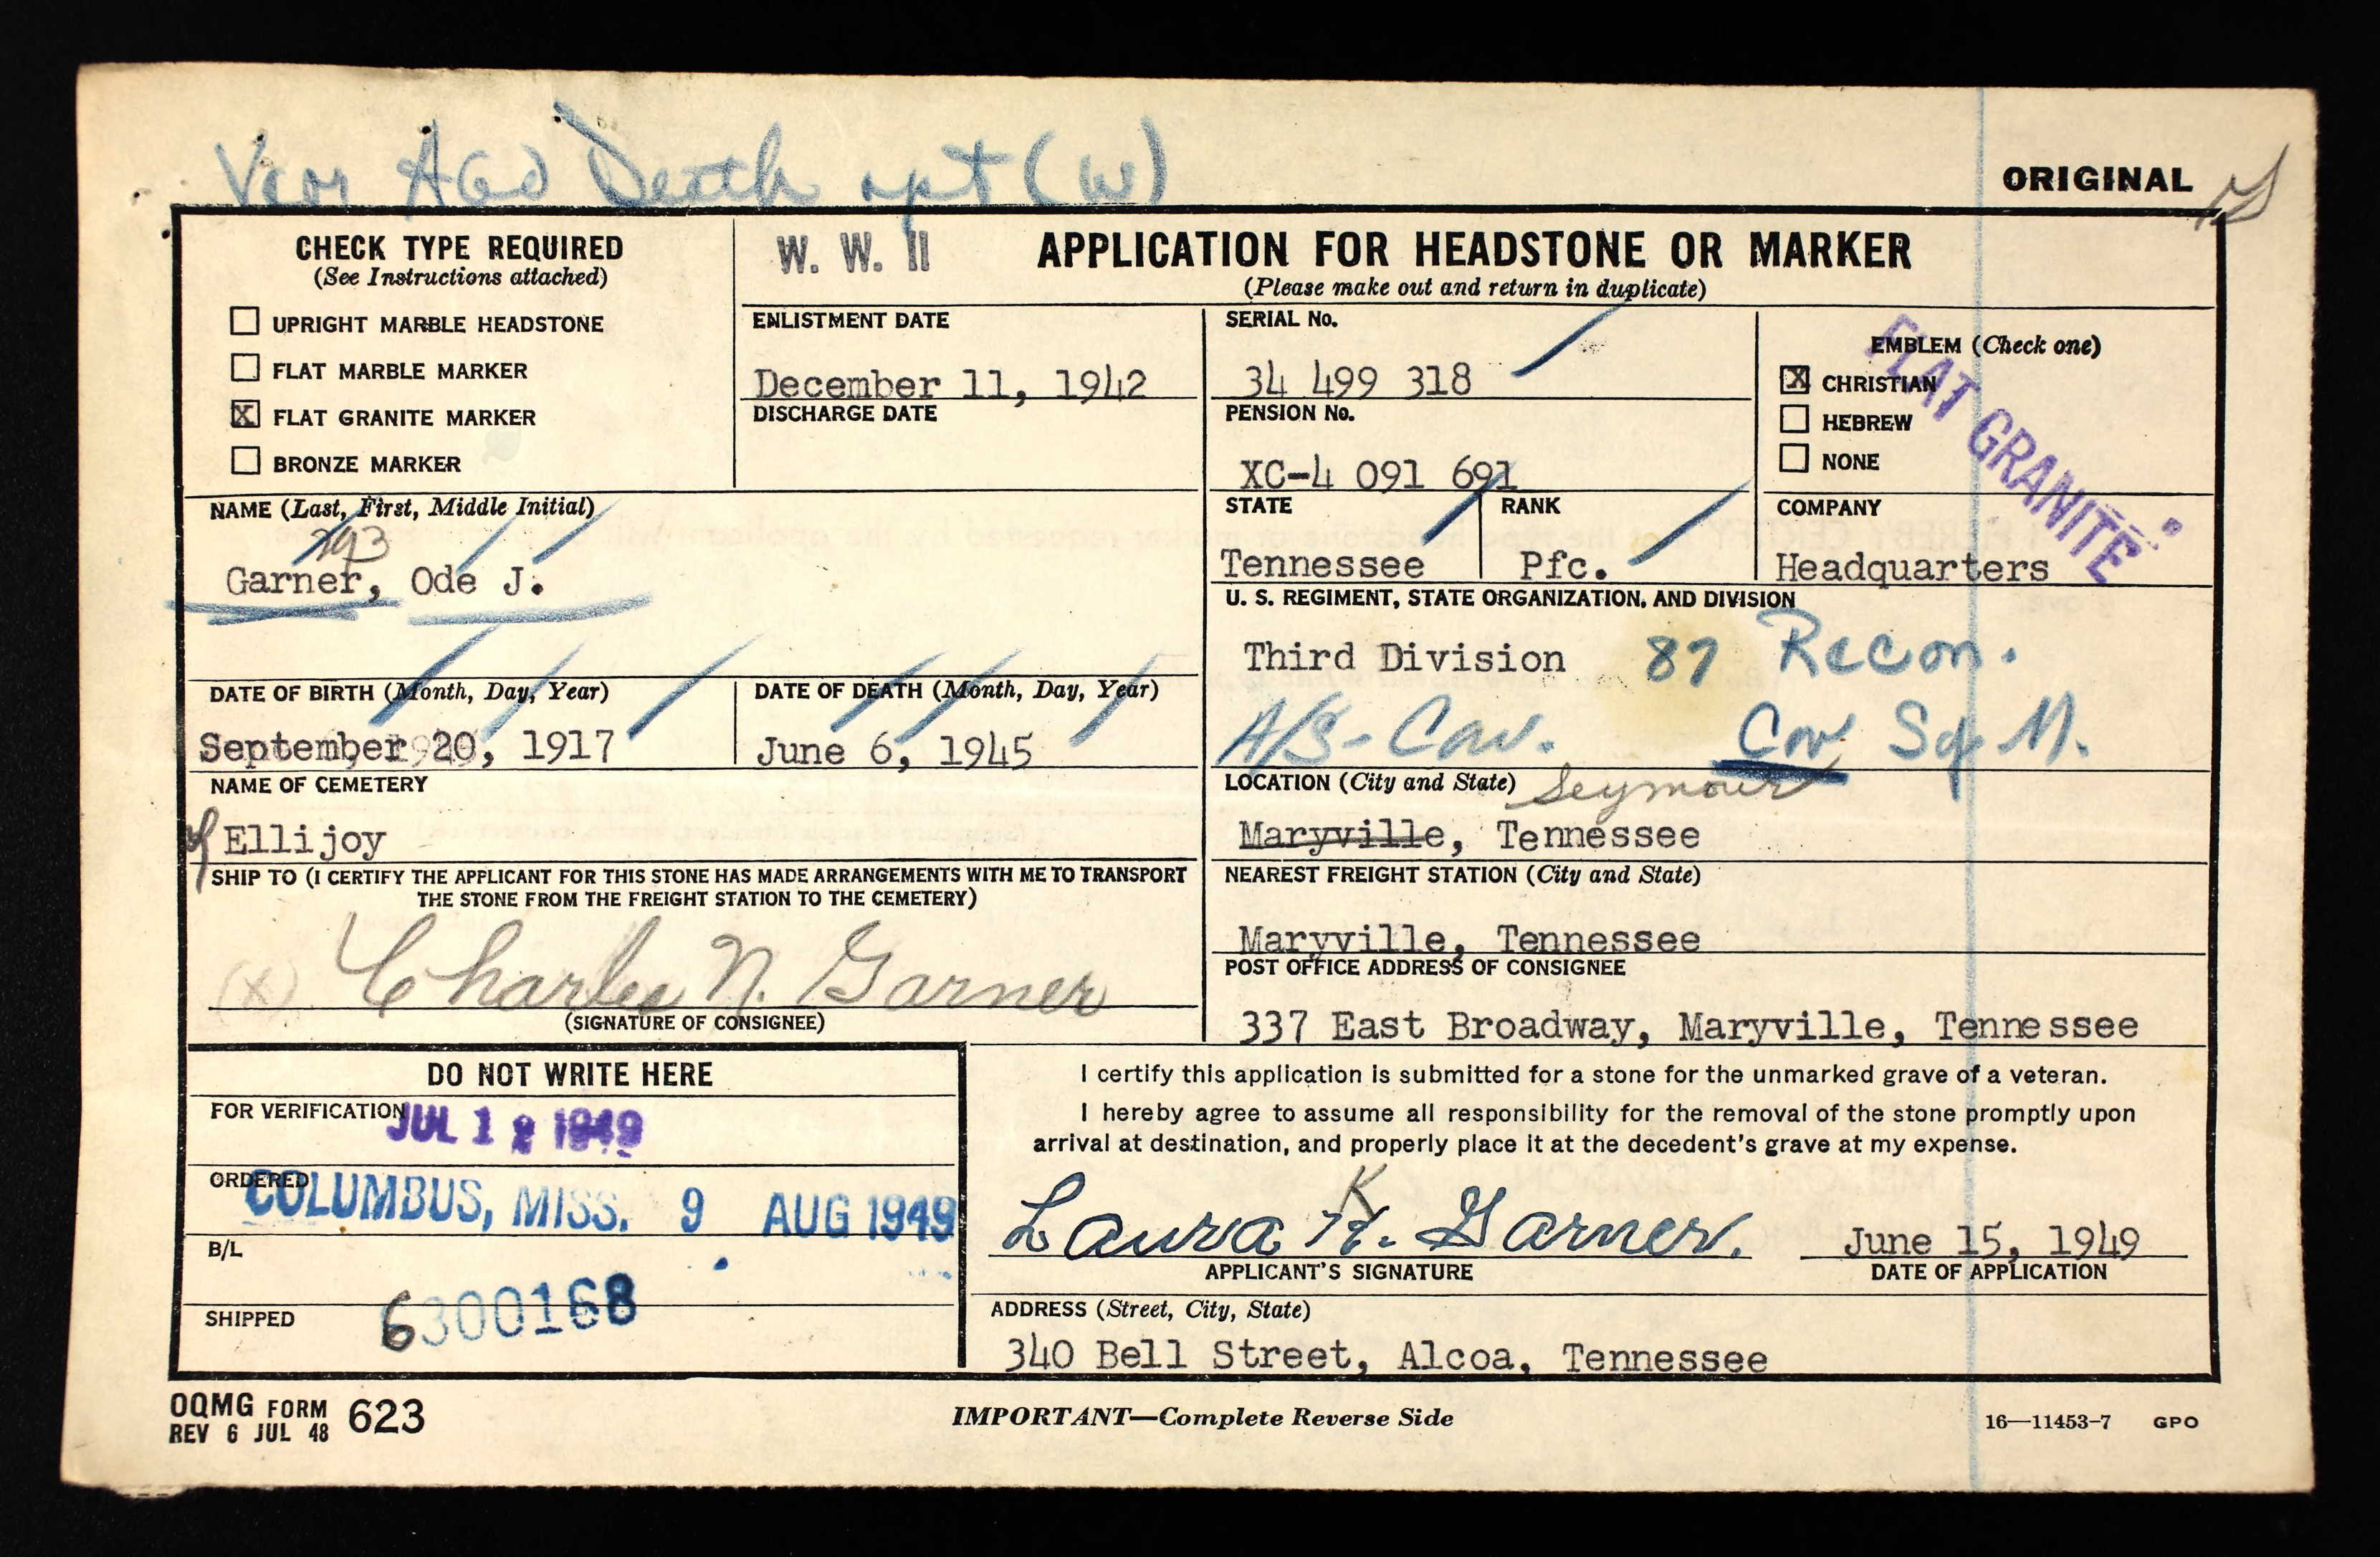 Death rpt (W)
ORIGINAL
CHECK TYPE REQUIRED
(See Instructions attached)
UPRIGHT MARBLE HEADSTONE
FLAT MARBLE MARKER
X FLAT GRANITE MARKER
BRONZE MARKER
W. W. II
APPLICATION FOR HEADSTONE OR MARKER
(Please make out and return in duplicate)
ENLISTMENT DATE
December 11, 1942
DISCHARGE DATE
SERIAL No.
34 499 318
PENSION No.
XC-4 091 691
EMBLEM (Check one)
X CHRISTIAN
HEBREW
NONE
FLAT GRANITE
NAME (Last, First, Middle Initial)
Garner, Ode J.
STATE
Tennessee
RANK
Pfc.
COMPANY
Headquarters
U. S. REGIMENT, STATE ORGANIZATION, AND DIVISION
Third Division 87 Recon.
Cav. Cav Sq M.
DATE OF BIRTH (Month, Day, Year)
September 20, 1917
DATE OF DEATH (Month, Day, Year)
June 6, 1945
NAME OF CEMETERY
Ellijoy
LOCATION (City and State) Seymour
Maryville, Tennessee
SHIP TO (I CERTIFY THE APPLICANT FOR THIS STONE HAS MADE ARRANGEMENTS WITH ME TO TRANSPORT
THE STONE FROM THE FREIGHT STATION TO THE CEMETERY)
(X) Charles N. Garner
(SIGNATURE OF CONSIGNEE)
NEAREST FREIGHT STATION (City and State)
Maryville, Tennessee
POST OFFICE ADDRESS OF CONSIGNEE
337 East Broadway, Maryville, Tennessee
DO NOT WRITE HERE
FOR VERIFICATION JUL 12 1949
ORDERED
COLUMBUS, MISS. 9 AUG 1949
B/L
SHIPPED 6300168
I certify this application is submitted for a stone for the unmarked grave of a veteran.
I hereby agree to assume all responsibility for the removal of the stone promptly upon
arrival at destination, and properly place it at the decedent's grave at my expense.
K
Laura K. Garner.
APPLICANT'S SIGNATURE
June 15, 1949
DATE OF APPLICATION
ADDRESS (Street, City, State)
340 Bell Street, Alcoa, Tennessee
OQMG FORM 623
REV 6 JUL 48
IMPORTANT—Complete Reverse Side
16—11453-7 GPO